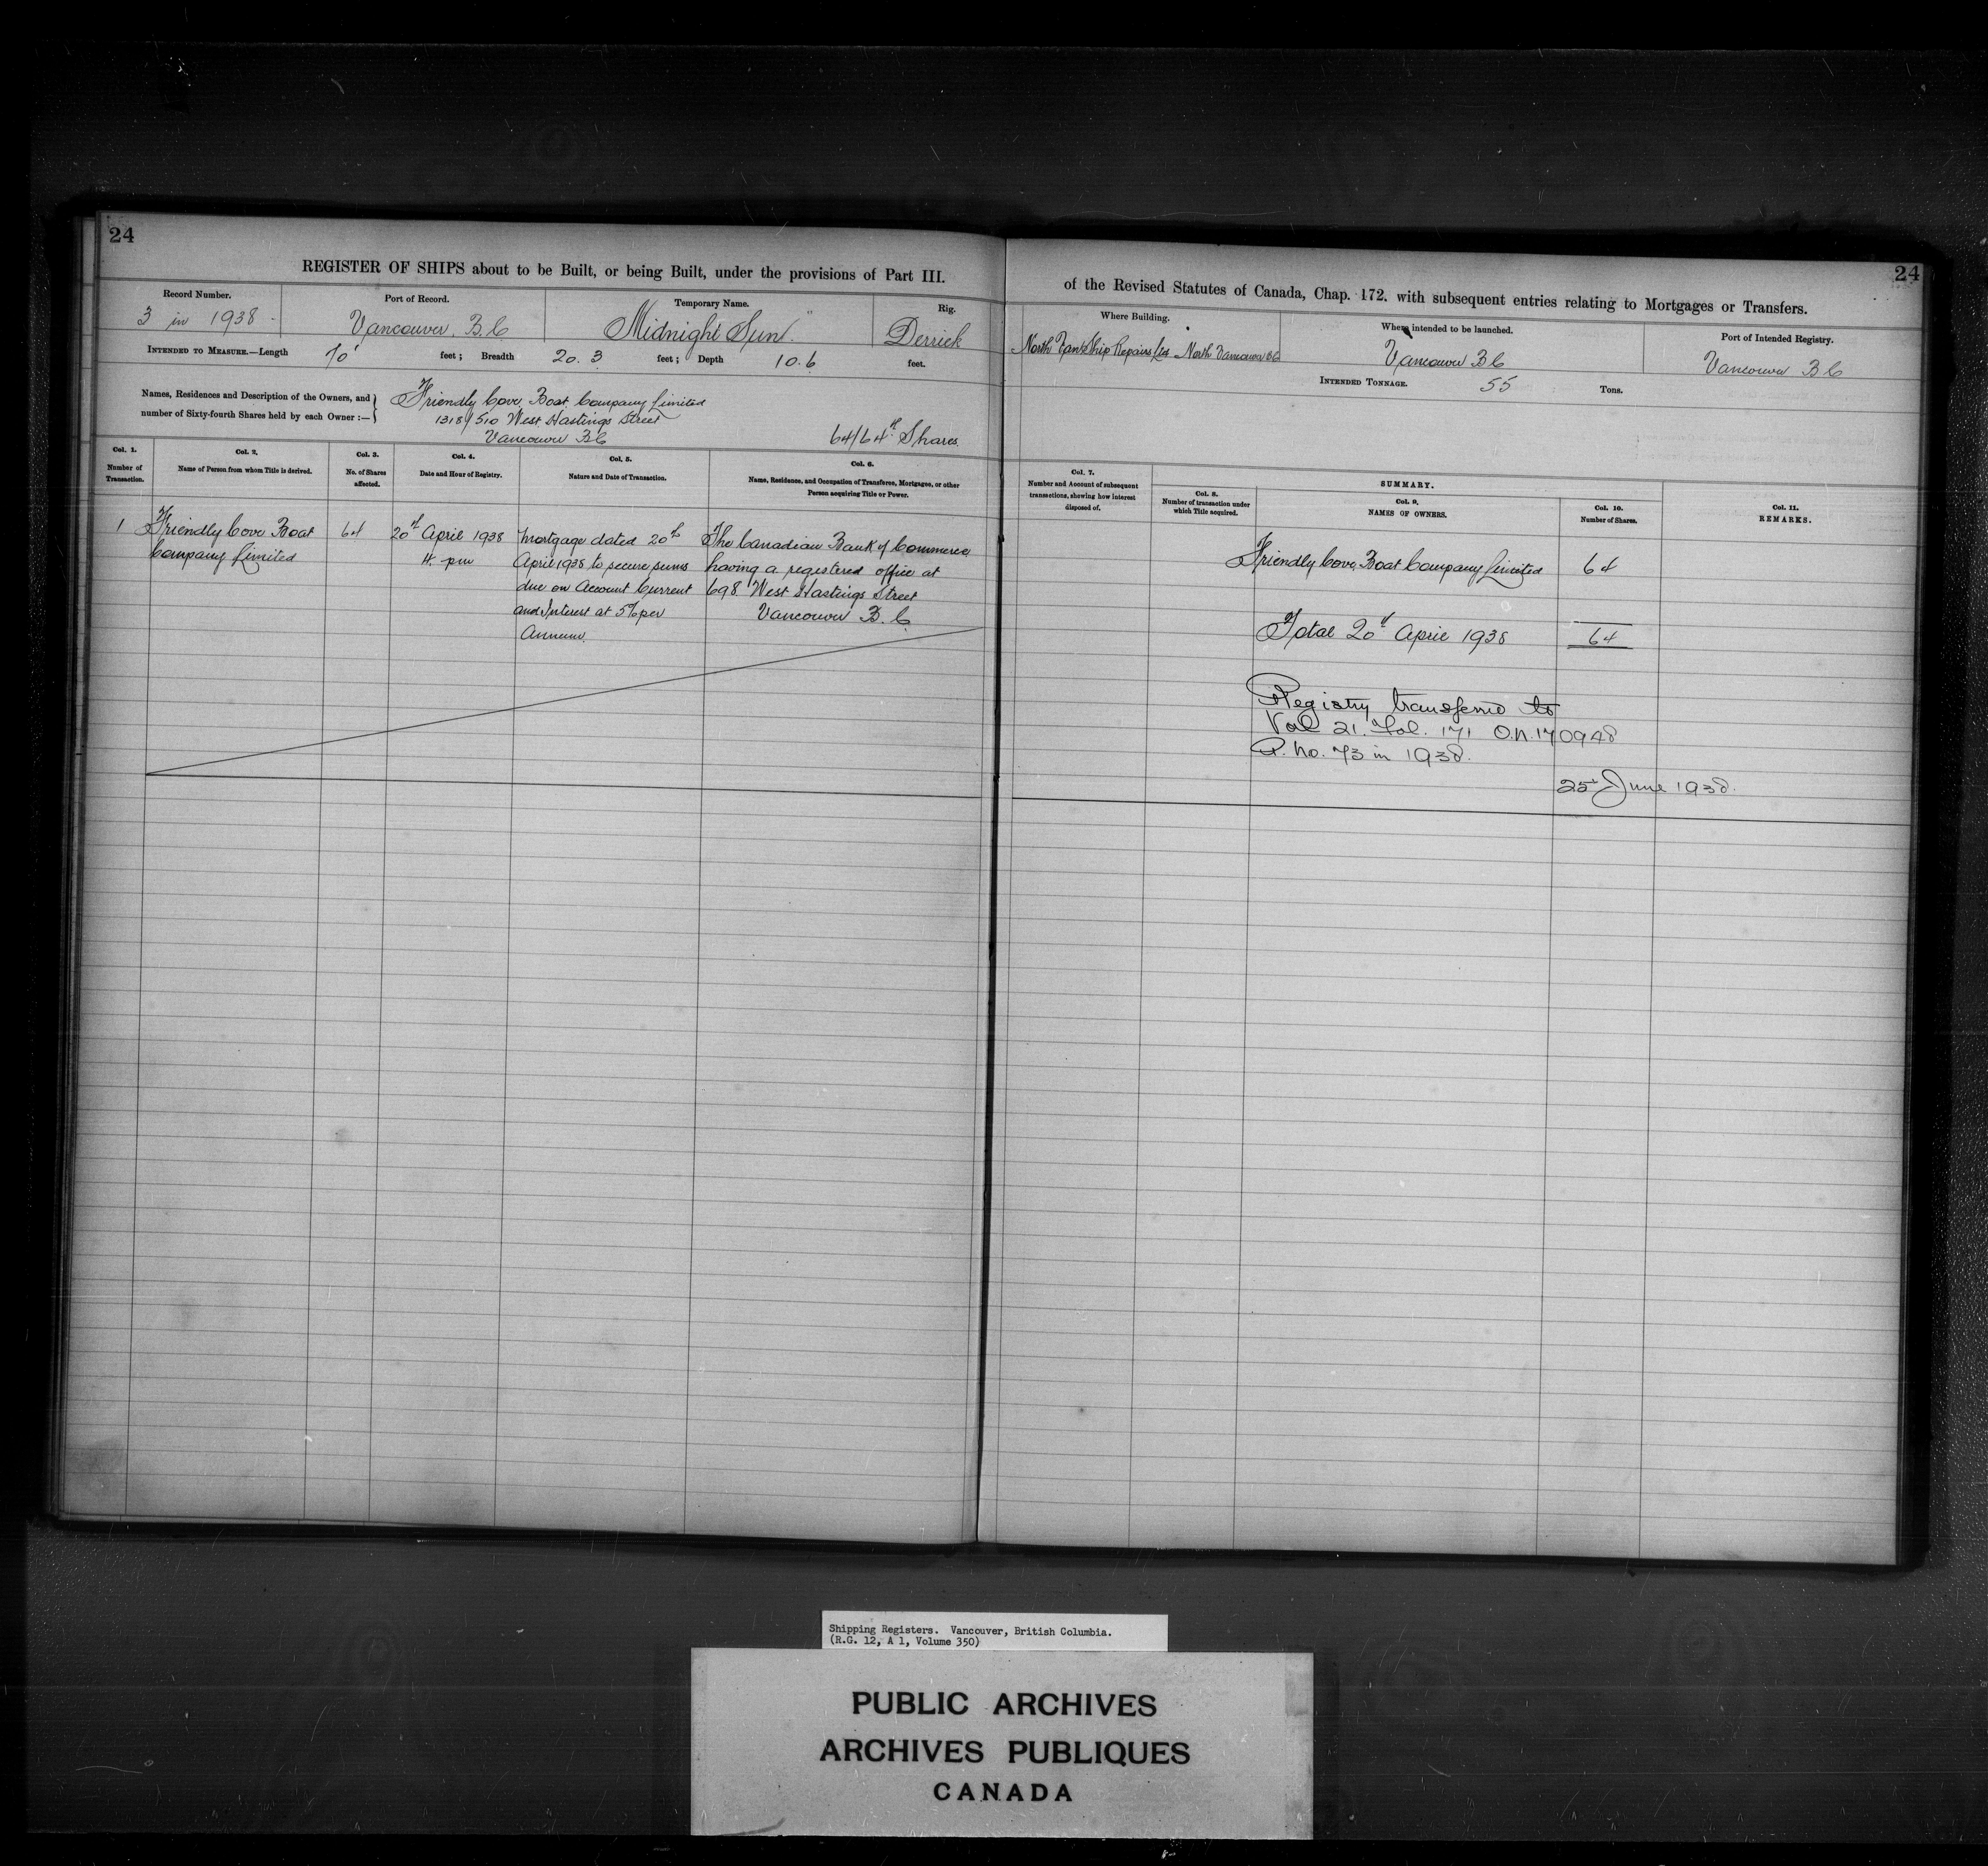 24
REGISTER OF SHIPS about to be Built, or being Built, under the provisions of Part III.
Record Number.
3 in 1938
Port of Record.
Vancouver. B.C
Temporary Name.
"Midnight Sun"
Rig.
Derrick
INTENDED TO MEASURE.—Length 70' feet; Breadth 20.3 feet; Depth 10.6 feet.
Names, Residences and Description of the Owners, and
number of Sixty-fourth Shares held by each Owner:—
Friendly Cove Boat Company Limited
1318/510 West Hastings Street
Vancouver BC
64/64th Shares
Col. 1.
Number of
Transaction.
Col. 2.
Name of Person from whom Title is derived.
Col. 3.
No. of Shares
affected.
Col. 4.
Date and Hour of Registry.
Col. 5.
Nature and Date of Transaction.
Col. 6.
Name, Residence, and Occupation of Transferee, Mortgagee, or other
Person acquiring Title or Power.
1
Friendly Cove Boat
Company Limited
64
20th April 1938
4. pm
Mortgage dated 20th
April 1938 to secure sums
due on Account Current
and Interest at 5% per
Annum.
The Canadian Bank of Commerce
having a registered office at
698 West Hastings Street
Vancouver B.C.
24
of the Revised Statutes of Canada, Chap. 172. with subsequent entries relating to Mortgages or Transfers.
Where Building.
North Ship Repairs Ltd. North Vancouver BC
Where intended to be launched.
Vancouver BC
Port of Intended Registry.
Vancouver BC
INTENDED TONNAGE. 55 Tons.
Col. 7.
Number and Account of subsequent
transactions, showing how interest
disposed of.
SUMMARY.
Col. 8.
Number of transaction under
which Title acquired.
Col. 9.
NAMES OF OWNERS.
Col. 10.
Number of Shares.
Col. 11.
REMARKS.
Friendly Cove Boat Company Limited 64
Total 20th April 1938 64
Registry transferred to
Vol 21. Fol. 171 O.N. 170948
P. No. 73 in 1938.
25 June 1938.
Shipping Registers. Vancouver, British Columbia.
(R.G. 12, A 1, Volume 350)
PUBLIC ARCHIVES
ARCHIVES PUBLIQUES
CANADA